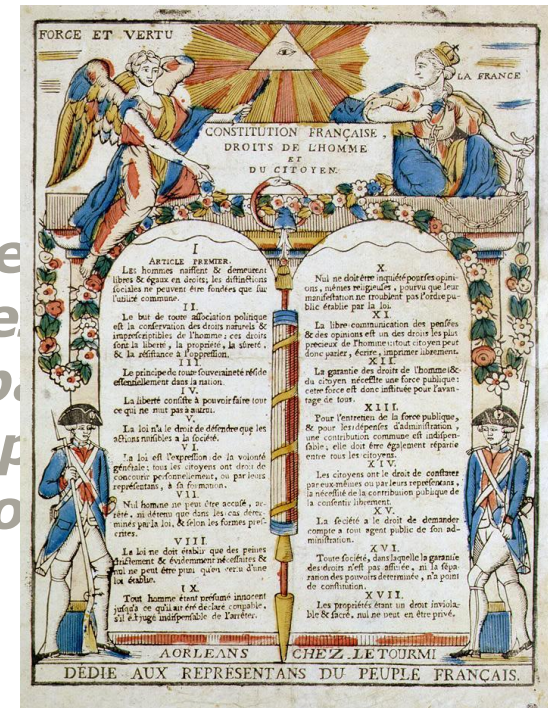 FORCE ET VERTU
LA FRANCE
CONSTITUTION FRANÇAISE,
DROITS DE L'HOMME
ET
DU CITOYEN.
I
ARTICLE PREMIER.
Les hommes naissent & demeurent
libres & égaux en droits; les distinctions
sociales ne peuvent être fondées que sur
l'utilité commune.
II.
Le but de toute association politique
est la conservation des droits naturels &
imprescriptibles de l'homme; ces droits
sont la liberté, la propriété, la sûreté,
& la résistance à l'oppression.
III
Le principe de toute souveraineté réside
essentiellement dans la nation.
IV.
La liberté consiste à pouvoir faire tout
ce qui ne nuit pas à autrui.
V.
La loi n'a le droit de défendre que les
actions nuisibles a la société.
VI.
La loi est l'expression de la volonté
générale; tous les citoyens ont droit de
concourir personnellement, ou par leurs
représentans, à sa formation.
VII.
Nul homme ne peut être accusé, ar-
rêté, ni détenu que dans les cas déter-
minés par la loi, & selon les formes pres-
crites.
VIII.
La loi ne doit établir que des peines
strictement & évidemment nécessaires &
nul ne peut être puni qu'en vertu d'une
loi établie.
IX.
Tout homme étant présumé innocent
jusqu'a ce qu'il ait été déclaré coupable,
s'il est jugé indispensable de l'arrêter.
X.
Nul ne doit être inquiété pour ses opini-
ons, mêmes religieuses, pourvu que leur
manifestation ne troublent pas l'ordre pu-
blic établie par la loi.
XI.
La libre communication des pensées
& des opinions est un des droits les plus
précieux de l'homme: tout citoyen peut
donc parler, écrire, imprimer librement.
XII.
La garantie des droits de l'homme &
du citoyen nécessite une force publique:
cette force est donc instituée pour l'avan-
tage de tous.
XIII.
Pour l'entretien de la force publique,
& pour les dépenses d'administration,
une contribution commune est indispen-
sable; elle doit être également répartie
entre tous les citoyens.
XIV.
Les citoyens ont le droit de constater
par eux-mêmes ou par leurs représentans,
la nécessité de la contribution publique de
la consentir librement.
XV.
La société a le droit de demander
compte a tout agent public de son ad-
ministration.
XVI.
Toute société, dans laquelle la garantie
des droits n'est pas assurée, ni la sépa-
ration des pouvoirs déterminée, n'a point
de constitution.
XVII.
Les propriétés étant un droit inviola-
ble & sacré, nul ne peut en être privé.
A ORLEANS CHEZ LETOURMI
DÉDIÉ AUX REPRÉSENTANS DU PEUPLE FRANÇAIS.